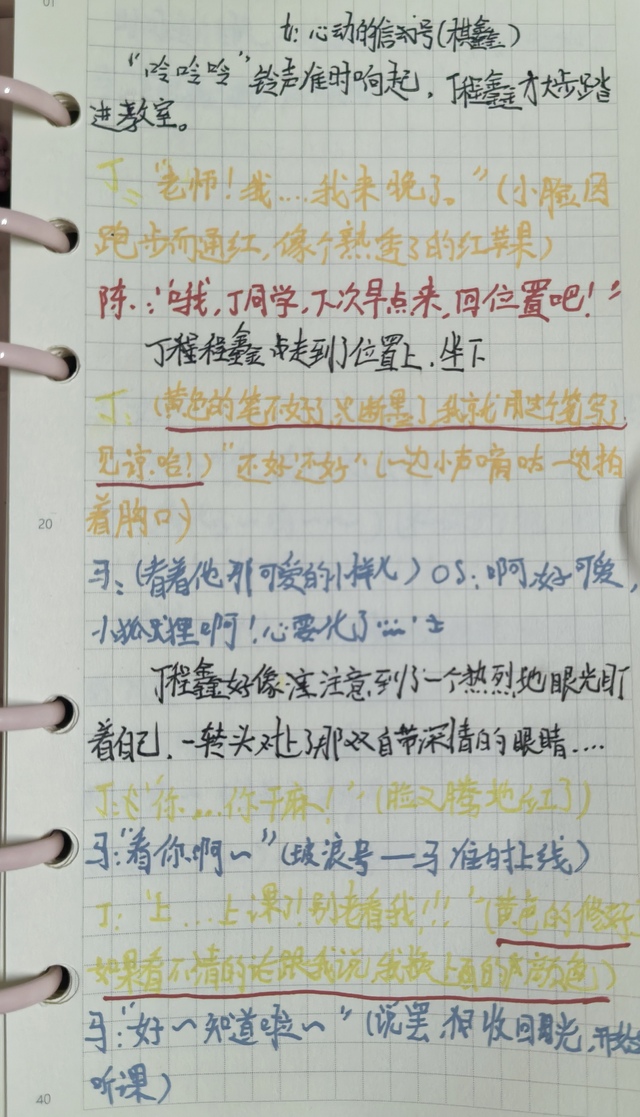 01
t: 心动的信号(祺鑫)
“呤呤呤”铃声准时响起，丁程鑫才大步踏
进教室。
丁：“老师！我....我来晚了。”(小脸因
跑步而通红，像个熟透了的红苹果)
陈.：“哦，丁同学，下次早点来，回位置吧！”
丁程程鑫走到了位置上.坐下
丁：(黄色的笔不好了只断墨了我就用这个笔写了
见谅.哈！)“还好还好”(一边小声嘀咕一边拍
20
着胸口)
马：(看着他那可爱的小样儿)OS：啊,好可爱，
小狐狸啊！心要化了
丁程鑫好像注意到了一个热烈地眼光盯
着自己.一转头对上了那双自带深情的眼睛....
丁：“你....你干麻！”(脸又腾地红了)
马：“看你啊～”(玻浪号一马准时上线)
丁：“上...上课了!别老看我!!!”(黄色的修好
如果看不清的话跟我说,我换上面的颜色)
马：“好～知道啦～”(说罢,收回目光,开始
听课)
40